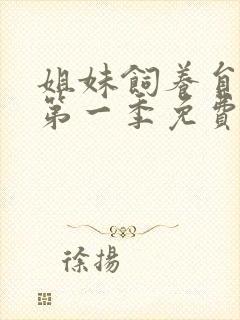 姐妹飼養
第一季免費
徐揚